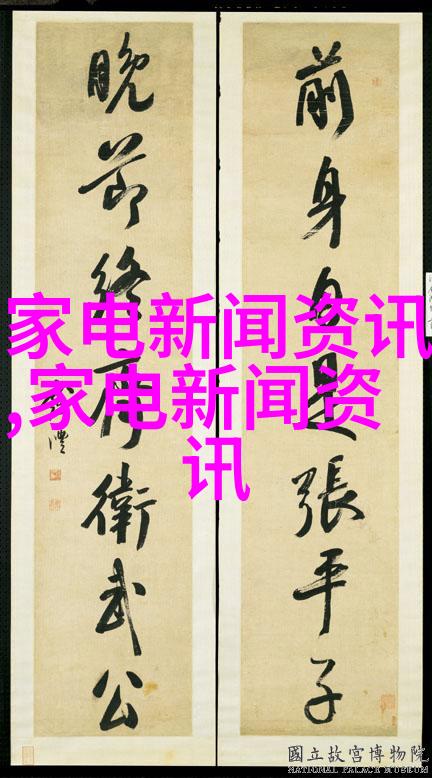 前身自是張平子
晚節終衛武公
澧
家电新闻资讯
,家电新闻资
讯
國立故宮博物院
NATIONAL PALACE MUSEUM